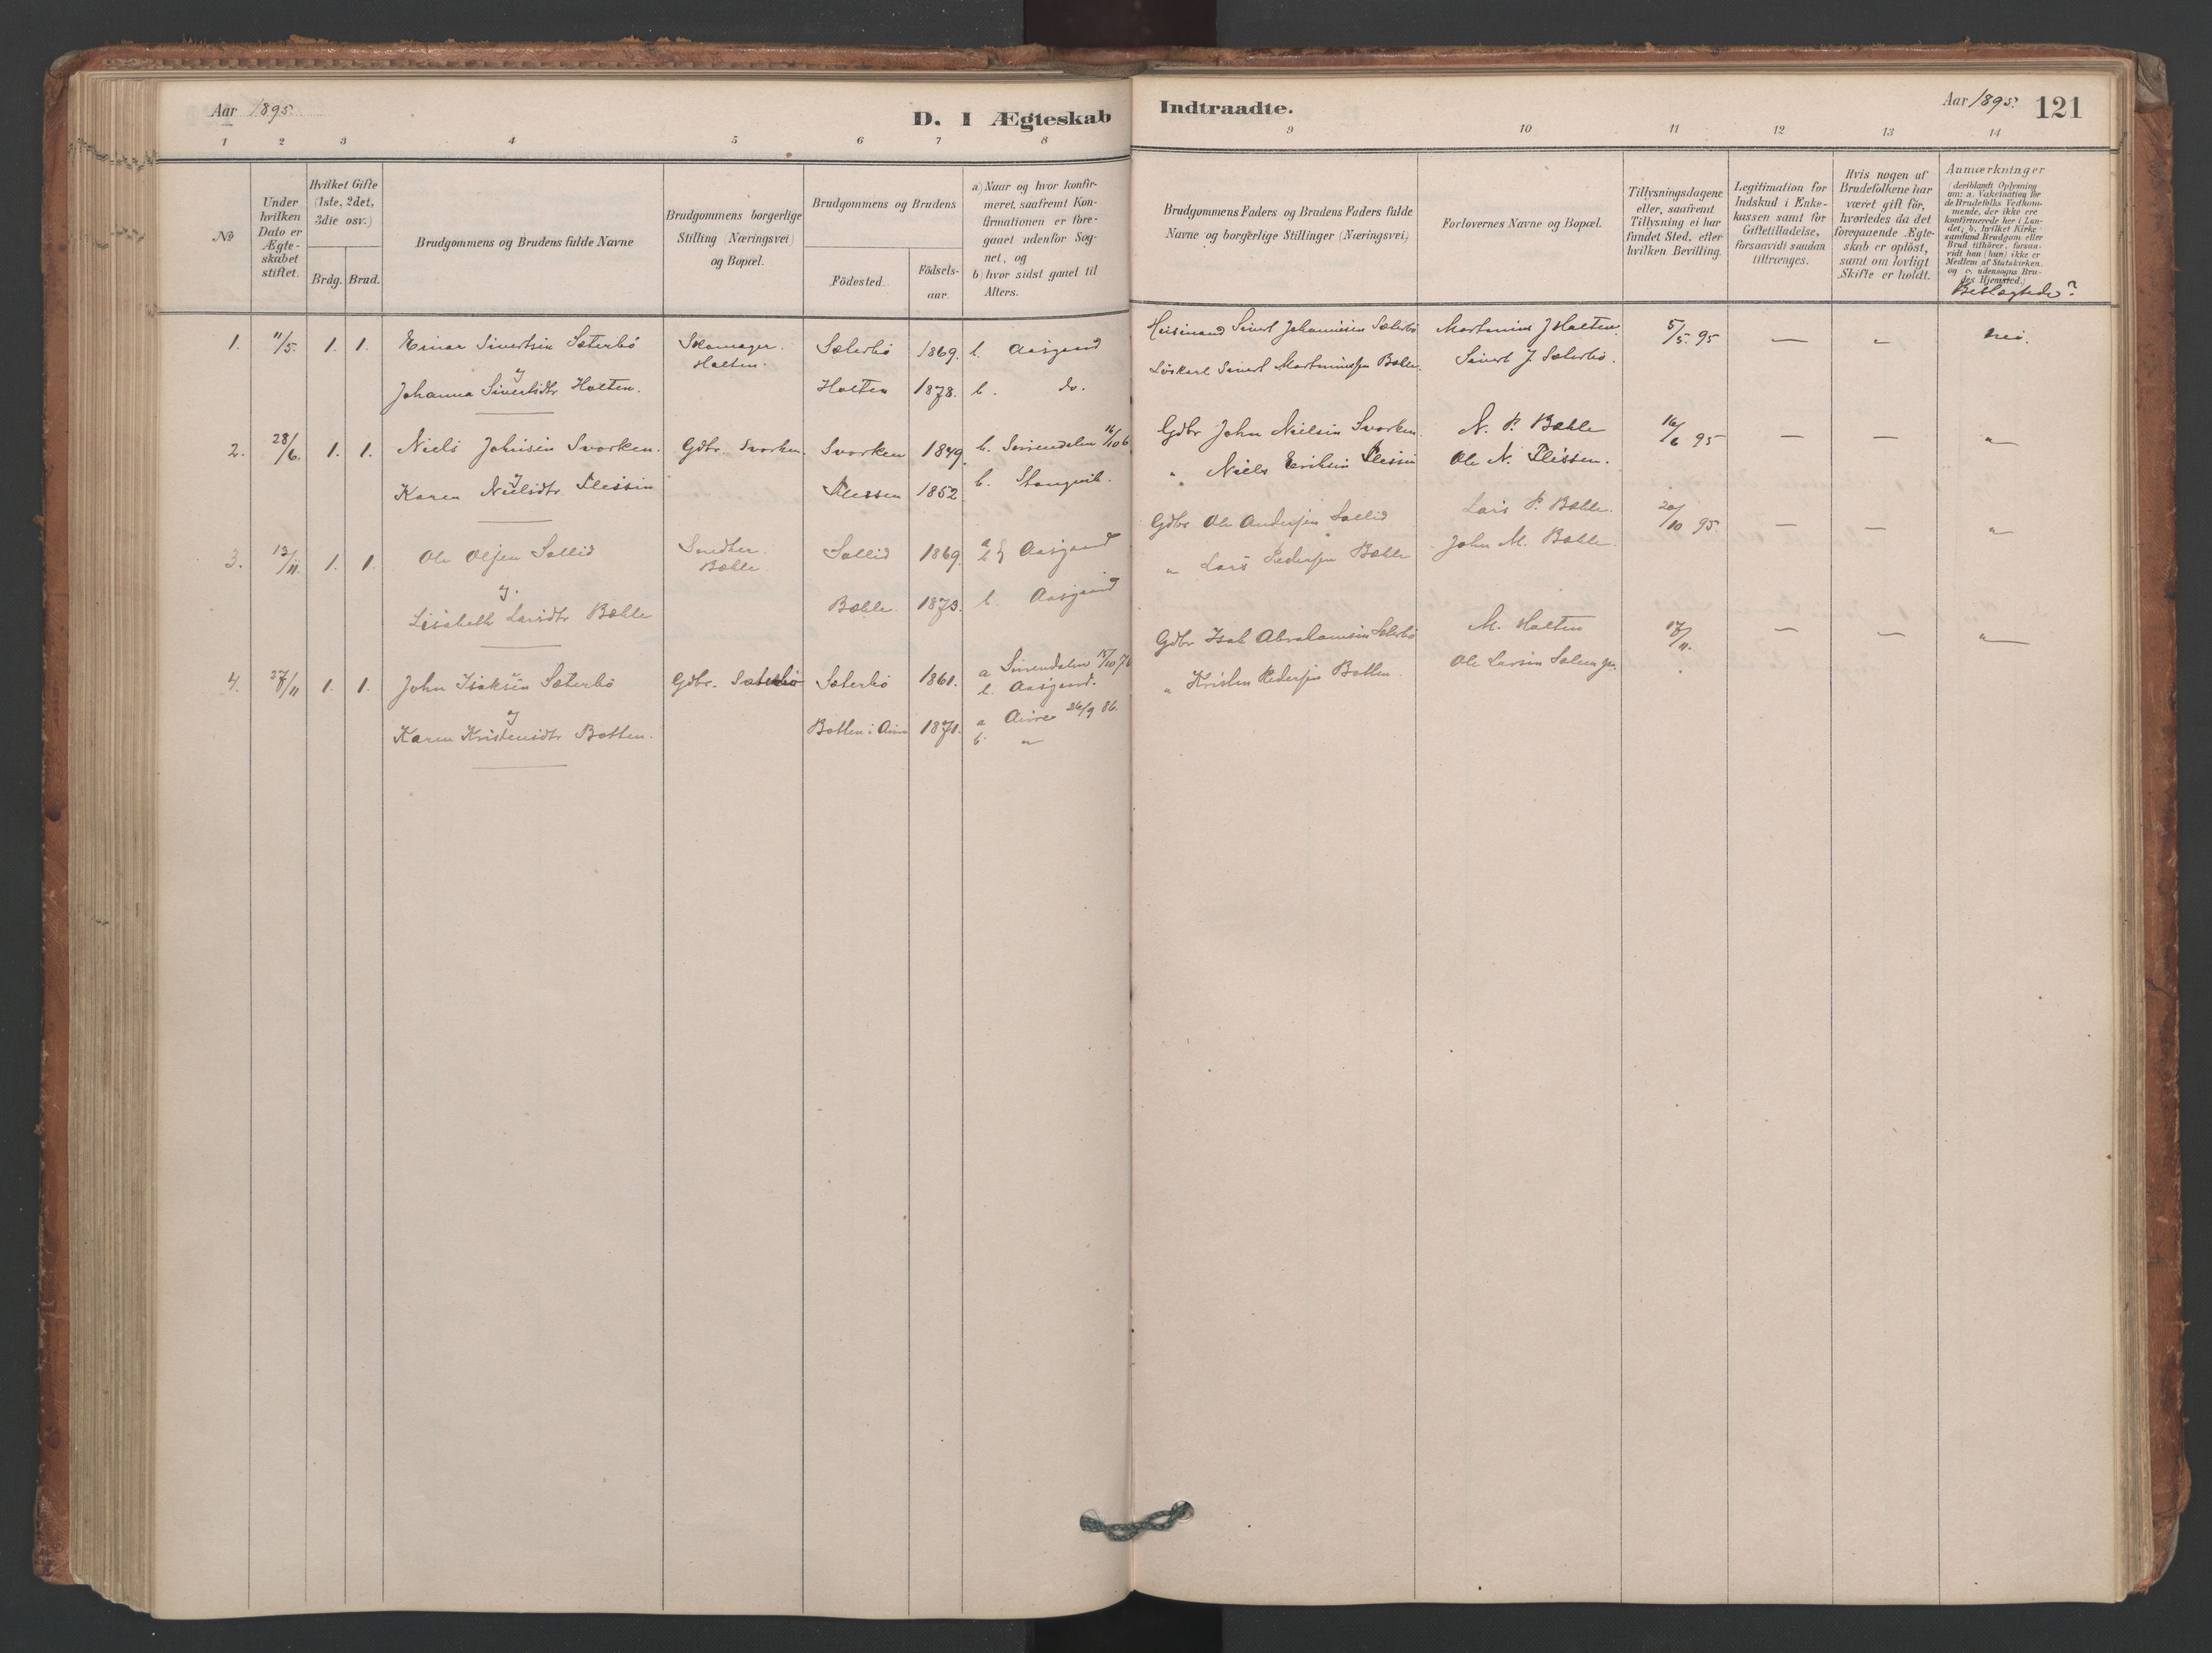 Aar 1895.
D. I Ægteskab
Indtraadte.
Aar 1895. 121
1 2 3 4 5 6 7 8 9 10 11 12 13 14
No
Under hvilken Dato er Ægteskabet stiftet.
Hvilket Gifte (1ste, 2det, 3die osv.)
Brdg. Brud.
Brudgommens og Brudens fulde Navne
Brudgommens borgerlige Stilling (Næringsvei) og Bopæl.
Brudgommens og Brudens
Födested.
Födselsaar.
a) Naar og hvor konfirmeret, saafremt Konfirmationen er foregaaet udenfor Sognet, og
b) hvor sidst gaaet til Alters.
Brudgommens Faders og Brudens Faders fulde Navne og borgerlige Stillinger (Næringsvei)
Forlovernes Navne og Bopæl.
Tillysningsdagene eller, saafremt Tillysning ei har fundet Sted, efter hvilken Bevilling.
Legitimation for Indskud i Enkekassen samt for Giftetilladelse, forsaavidt saadan tiltrænges.
Hvis nogen af Brudefolkene har været gift för, hvorledes da det foregaaende Ægteskab er oplöst, samt om lovligt Skifte er holdt.
Anmærkninger
(deriblandt Oplysning om: a. Vakcination for de Brudefolks Vedkommende, der ikke ere konfirmerede her i Landet; b. hvilket Kirkesamfund Brudgom eller Brud tilhörer, forsaavidt han (hun) ikke er Medlem af Statskirken, og c. udensogns Brudes Hjemsted.)
Beslægtede?
1. 11/5. 1. 1. Einar Sivertsen Sæterbö Skomager. Sæterbö 1869. b. Aasgaard Sivert Johannesen Sæterbö Martinius J Halten. 5/5. 95 — „ nei.
Halten.
Löskarl Sivert Bæhle. Sivert J. Sæterbö.
J
Johanna Sivertsdtr Halten. Halten 1878. b. do.
2. 28/6. 1. 1. Niels Johnsen Svorken. Gdbr. Svorken. Svorken 1849. b. Surendalen Gdbr John Nielsen Svorken. N. P. Bæhle 16/6 95 — — „
J
Karen Nielsdtr Flessen Flessen 1852 b. Stangvik. „ Niels Eriksen Flessen Ole N. Flessen.
3. 13/11. 1. 1. Ole Olsen Sollid Snedker. Sollid 1869. a b } Aasgaard Gdbr Ole Andersen Sollid Lars P. Bæhle. 20/10 95. — — „
Bæhle
J.
Lisabeth Larsdtr Bæhle Bæhle 1873. b. Aasgaard „ Lars Pedersen Bæhle John M. Bæhle
4. 27/11 1. 1. John Isaksen Sæterbö Gdbr. Sæterbö Sæterbö 1861. a Surendalen 15/10 76 Gdbr Isak Abrahamsen Sæterbö M. Halten 17/11. — — „
b. Aasgaard.
J
Karen Kristensdtr Botten. Botten i Aure 1871. a Aure 26/9 86. „ Kristen Pedersen Botten. Ole Larsen
b. „